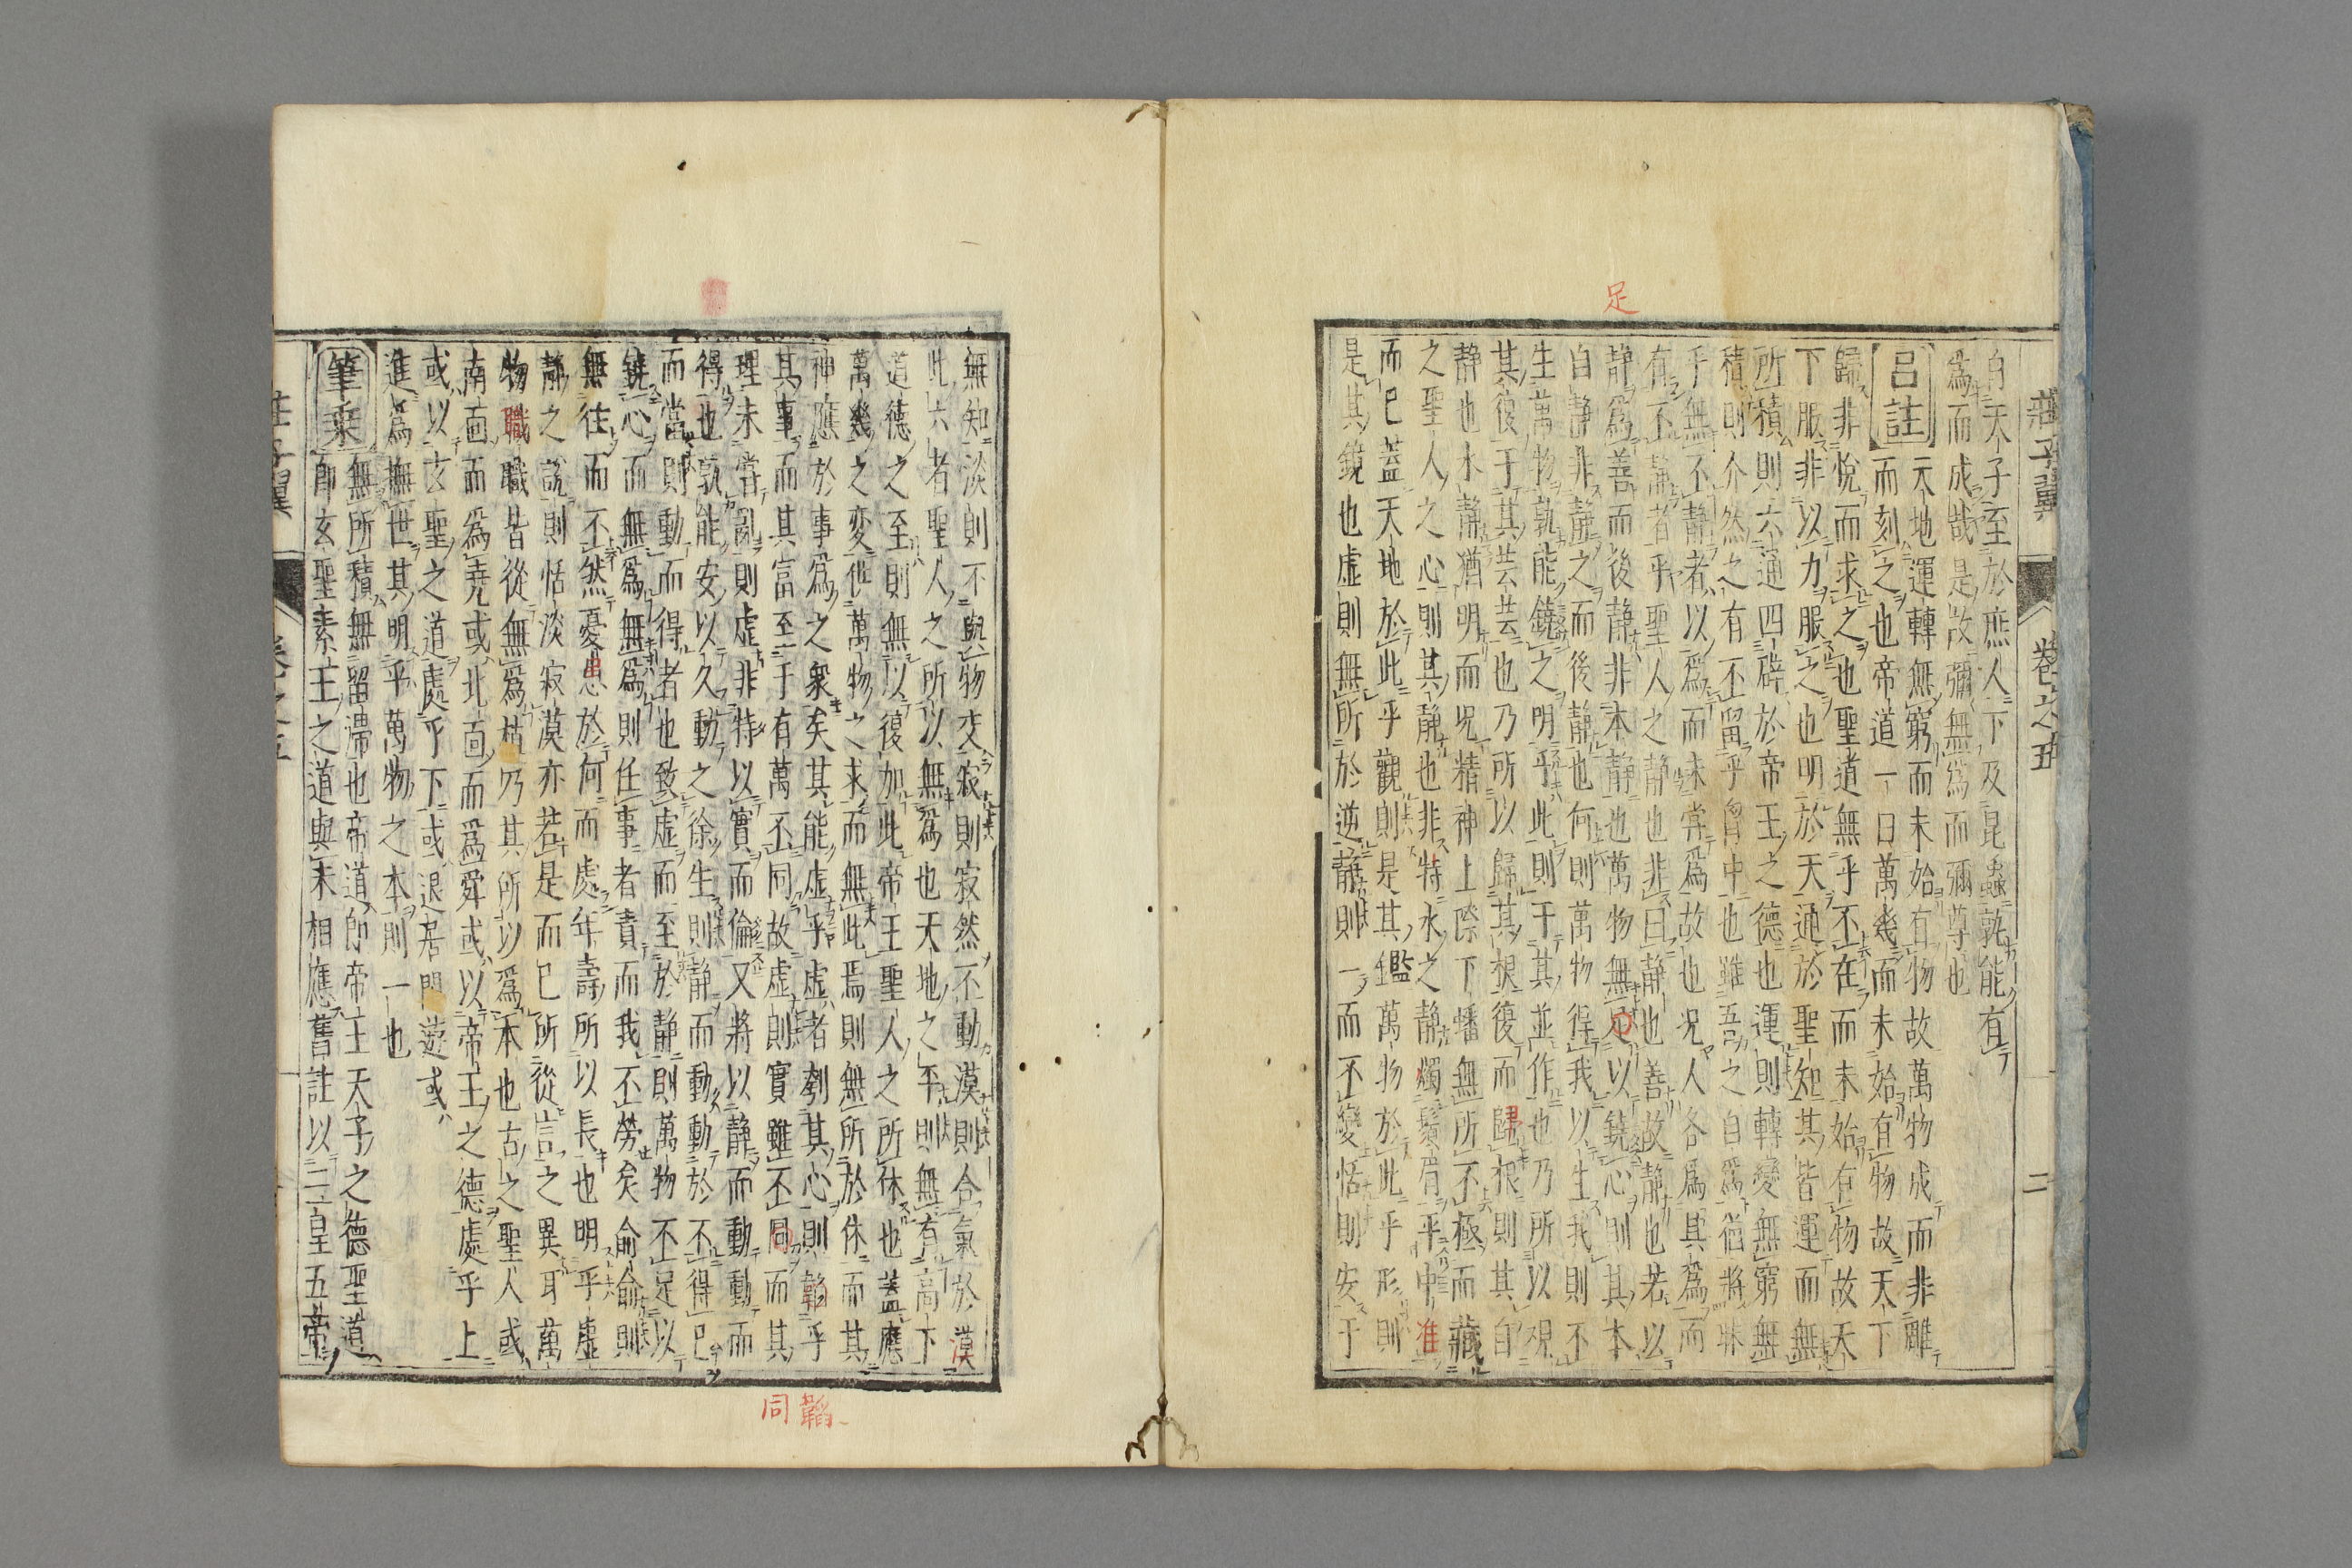 莊子翼 卷之五 二
自天子至於庶人下及昆蟲孰能有
爲而成哉是故彌無爲而彌尊也
呂註 天地運轉無窮而未始有物故萬物成而非雕
而刻之也帝道一日萬幾而未始有物故天下
歸非悅而求之也聖道無乎不在而未始有物故天
下服非以力服之也明於天通於聖知其皆運而無
所積則六通四辟於帝王之德也運則轉變無窮無
積則介然之有不留乎胷中也雖吾之自爲猶將昧
乎無不靜者以爲而未嘗爲故也况人各爲其爲而
有不靜者乎聖人之靜也非曰靜也善故靜也若以
静爲善而後静非本静也萬物無足以鐃心則其本
自静非静之而後静也何則萬物得我以生我則不
生萬物孰能鐃之明乎此則于其並作也乃所以視
其復于其芸芸也乃所以歸其根復而歸根則其自
静也水静猶明而况精神上際下蟠無所不極而藏
之聖人之心則其静也非特水之静燭鬚眉平中准
而已蓋天地於此乎觀則是其鑑萬物於此乎形則
是其鏡也虚則無所於逆静則一而不變恬則安于
足
無知淡則不與物交寂則寂然不動漠則合氣於漠
此六者聖人之所以無爲也天地之平則無有高下
道德之至則無以復加此帝王聖人之所休也蓋應
萬幾之変佗萬物之求而無此焉則無所於休而其
神應於事爲之衆矣其能虚乎虚者刳其心則韜乎
其事而其富至于有萬不同故虚則實雖不同而其
理未嘗亂則虚非特以實而倫又將以静而動動而
得也孰能安以久動之徐生則静而動動於不得已
而當則動而得者也致虚而至於静則萬物不足以
鐃心而無爲無爲則任事者責而我不勞矣俞俞則
無往而不然憂患於何而處年壽所以長也明乎虚
静之說則恬淡寂漠亦若是而已所從言之異耳萬
物職職皆從無爲植乃其所以爲本也古之聖人或
南面而爲堯或北面而爲舜或以帝王之德處乎上
或以玄聖之道處乎下或退居間遊或
進爲撫世其明乎萬物之本則一也
筆乗 無所積無留滯也帝道即帝王天子之德聖道
即玄聖素王之道與末相應舊註以三皇五帝
同 韜
莊子翼 卷之五